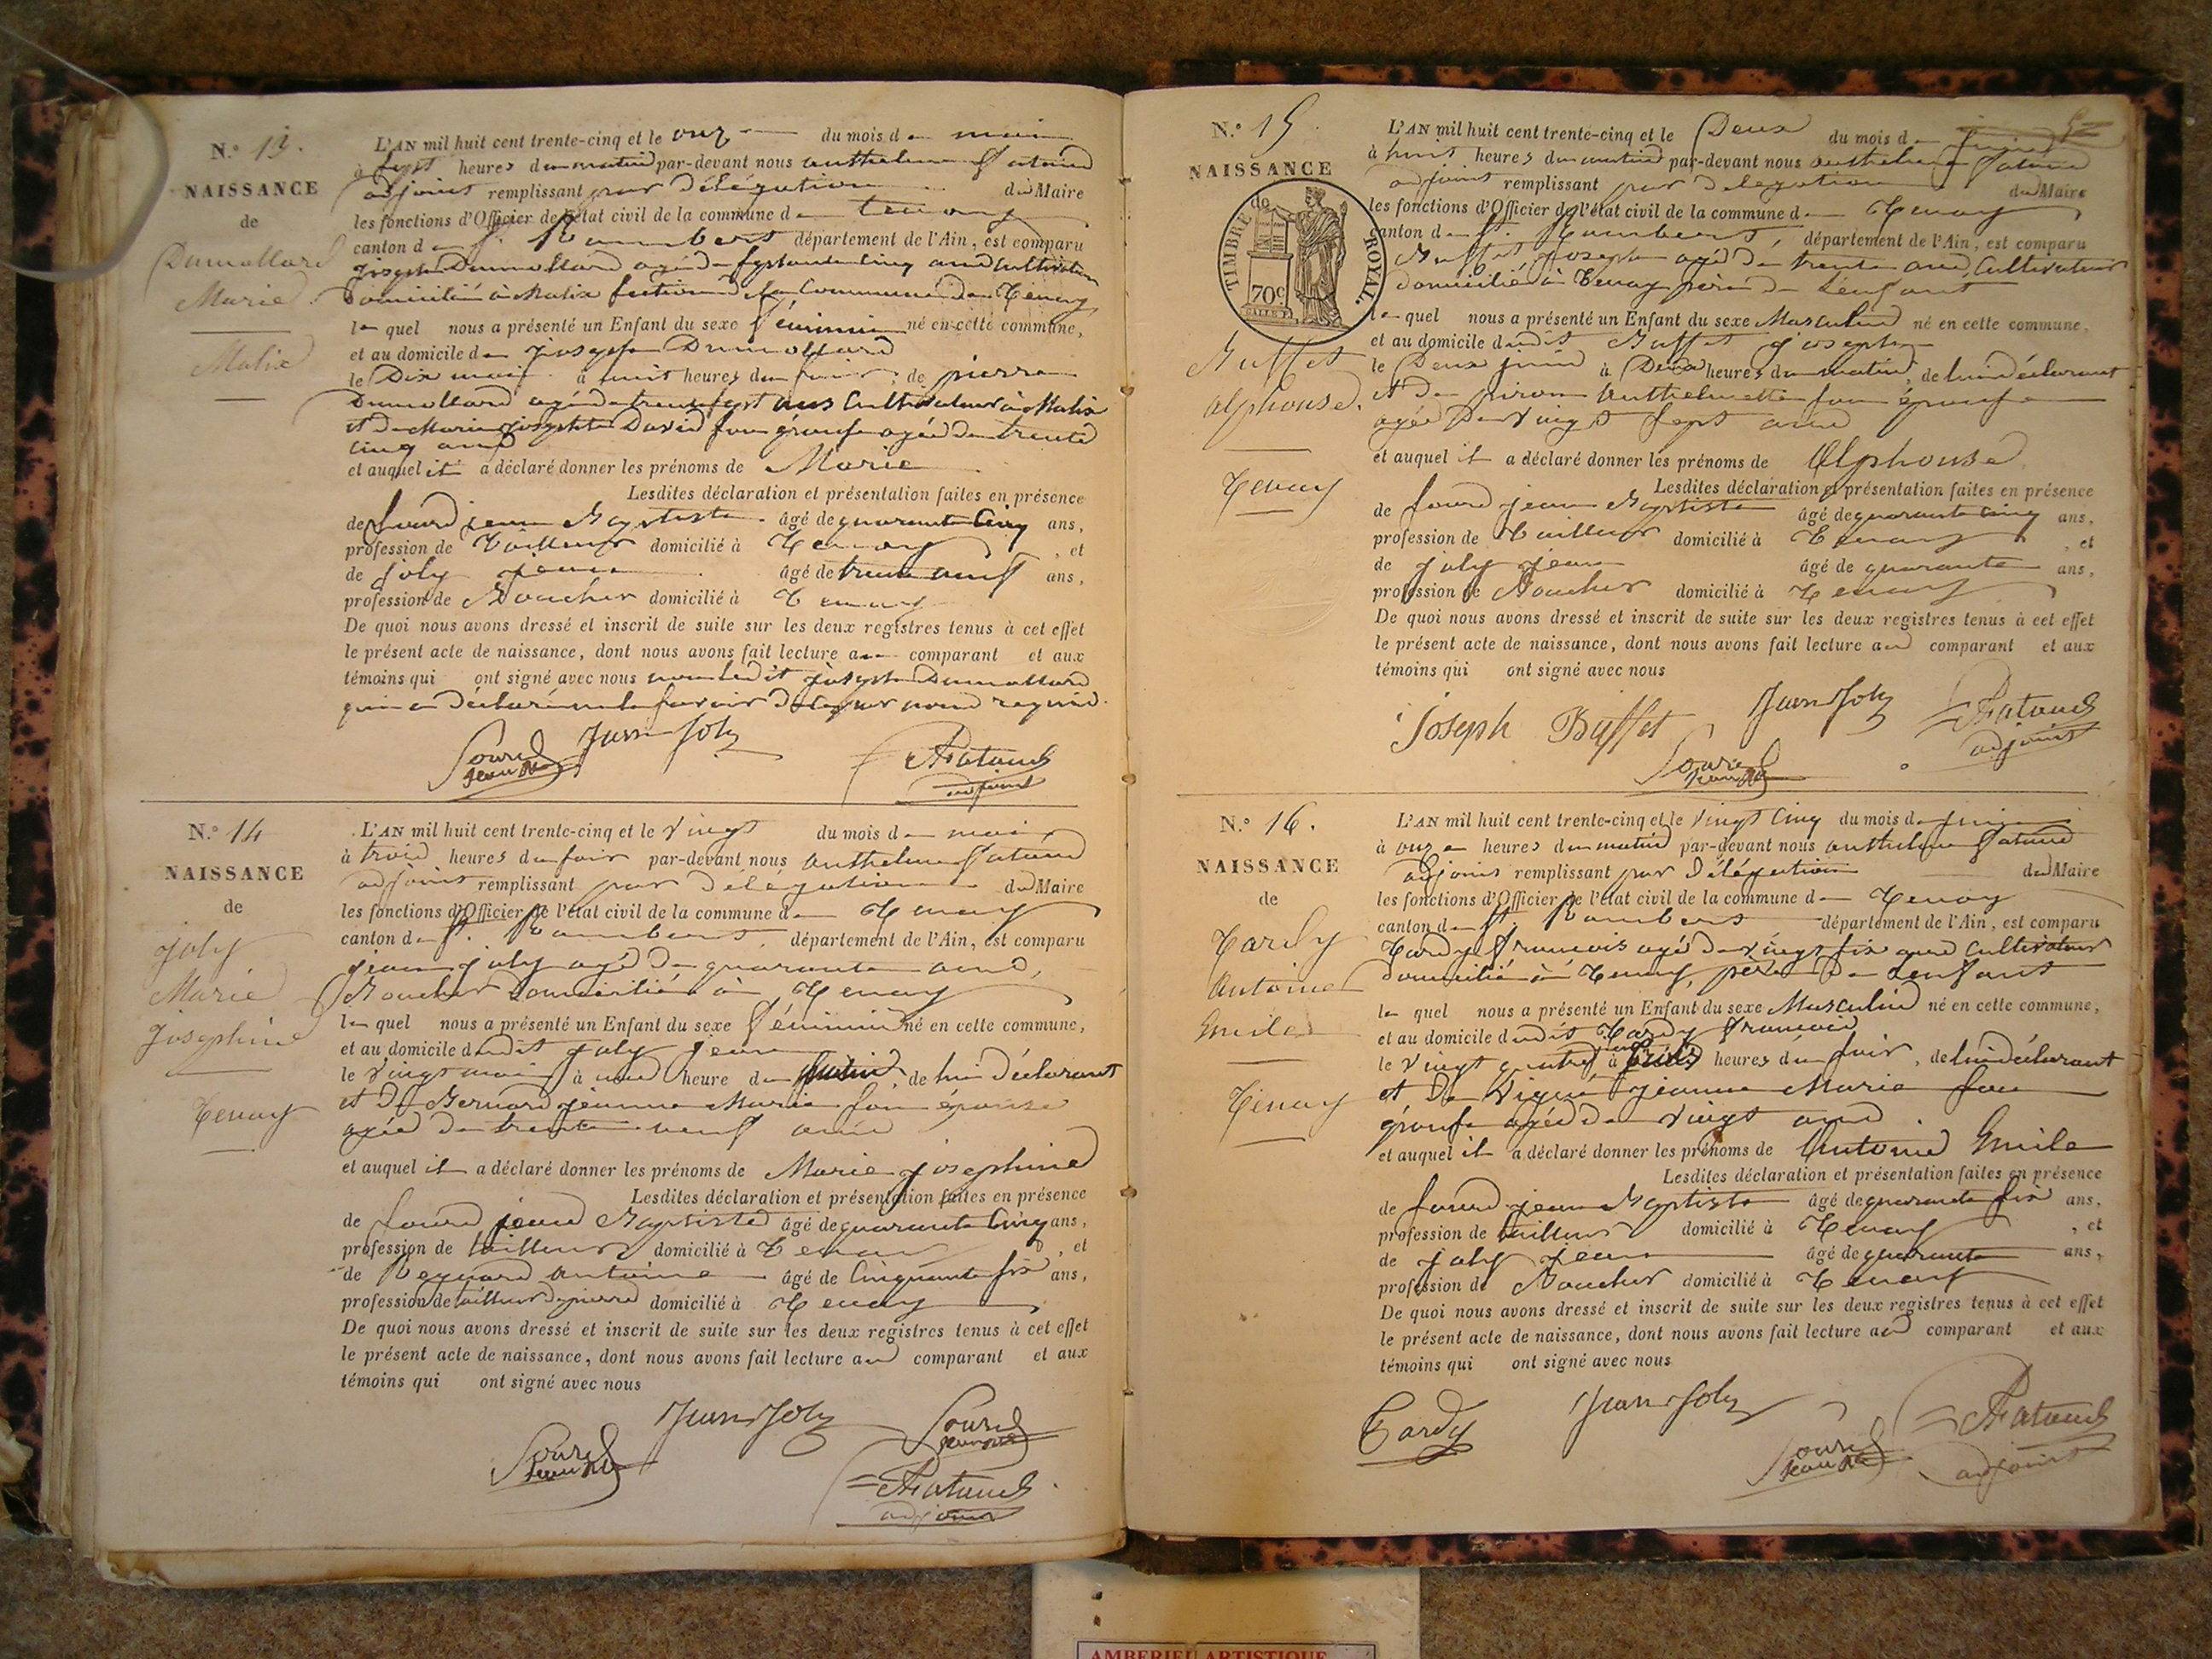 N.º 13.
NAISSANCE
de
Dumollard
Marie
Malix
L'AN mil huit cent trente-cinq et le onze du mois de mai
à sept heures du matin par-devant nous anthelme
adjoint remplissant par délégation du Maire
les fonctions d'Officier de l'état civil de la commune de tenay
canton de St. Rambert département de l'Ain, est comparu
joseph Dumollard agé de septante cinq ans Cultivateur
domicilié à Malix section de la Commune de Tenay
le quel nous a présenté un Enfant du sexe féminin né en cette commune,
et au domicile de joseph Dumollard
le Dix mai à huit heures du soir, de pierre
Dumollard agé de trente sept ans Cultivateur à Malix
et de Marie josephte David son épouse agée de trente
cinq ans
et auquel il a déclaré donner les prénoms de Marie
Lesdites déclaration et présentation faites en présence
de jean Baptiste âgé de quarante Cinq ans,
profession de Tailleur domicilié à Tenay, et
de joly jean âgé de trente neuf ans,
profession de Boucher domicilié à Tenay
De quoi nous avons dressé et inscrit de suite sur les deux registres tenus à cet effet
le présent acte de naissance, dont nous avons fait lecture au comparant et aux
témoins qui ont signé avec nous non ledit joseph Dumollard
qui a déclaré ne le savoir de ce par nous requis.
Jean Joly
adjoint
N.º 14
NAISSANCE
de
Joly
Marie
josephine
Tenay
L'AN mil huit cent trente-cinq et le vingt du mois de mai
à trois heures du soir par-devant nous anthelme
adjoint remplissant par délégation du Maire
les fonctions d'Officier de l'état civil de la commune de Tenay
canton de St. Rambert, département de l'Ain, est comparu
jean joly agé de quarante ans,
Boucher domicilié à Tenay
le quel nous a présenté un Enfant du sexe féminin né en cette commune,
et au domicile dudit joly jean
le vingt mai à une heure du matin, de lui déclarant
et de Bernard jeanne Marie son épouse
agée de trente neuf ans
et auquel il a déclaré donner les prénoms de Marie josephine
Lesdites déclaration et présentation faites en présence
de jean Baptiste âgé de quarante Cinq ans,
profession de tailleur domicilié à Tenay, et
de antoine âgé de Cinquante six ans,
profession de tailleur de pierre domicilié à Tenay
De quoi nous avons dressé et inscrit de suite sur les deux registres tenus à cet effet
le présent acte de naissance, dont nous avons fait lecture au comparant et aux
témoins qui ont signé avec nous
Jean Joly
adjoint
N.º 15.
NAISSANCE
TIMBRE ROYAL.
70c
Buffet
alphonse.
Tenay
L'AN mil huit cent trente-cinq et le Deux du mois de juin
à huit heures du matin par-devant nous anthelme
adjoint remplissant par délégation du Maire
les fonctions d'Officier de l'état civil de la commune de Tenay
canton de St. Rambert, département de l'Ain, est comparu
Buffet joseph agé de trente ans, Cultivateur
domicilié à Tenay père de L'enfant
le quel nous a présenté un Enfant du sexe Masculin né en cette commune,
et au domicile dudit Buffet joseph
le Deux juin à Deux heures du matin, de lui déclarant
et de anthelmette son épouse
agée De vingt sept ans
et auquel il a déclaré donner les prénoms de Alphonse
Lesdites déclaration et présentation faites en présence
de jean Baptiste âgé de quarante cinq ans,
profession de Tailleur domicilié à Tenay, et
de joly jean âgé de quarante ans,
profession de Boucher domicilié à Tenay
De quoi nous avons dressé et inscrit de suite sur les deux registres tenus à cet effet
le présent acte de naissance, dont nous avons fait lecture au comparant et aux
témoins qui ont signé avec nous
Joseph Buffet Jean Joly
adjoint
N.º 16.
NAISSANCE
de
Tardy
Antoine
Emile
Tenay
L'AN mil huit cent trente-cinq et le vingt Cinq du mois de juin
à onze heures du matin par-devant nous anthelme
adjoint remplissant par délégation du Maire
les fonctions d'Officier de l'état civil de la commune de Tenay
canton de St. Rambert département de l'Ain, est comparu
Tardy francois agé de vingt six ans Cultivateur
domicilié à Tenay, père de L'enfant
le quel nous a présenté un Enfant du sexe Masculin né en cette commune,
et au domicile dudit Tardy francois
le vingt quatre à heures du soir, de lui déclarant
et De jeanne Marie son
épouse agée de vingt ans
et auquel il a déclaré donner les prénoms de Antoine Emile
Lesdites déclaration et présentation faites en présence
de jean Baptiste âgé de quarante six ans,
profession de tailleur domicilié à Tenay, et
de joly jean âgé de quarante ans,
profession de Boucher domicilié à Tenay
De quoi nous avons dressé et inscrit de suite sur les deux registres tenus à cet effet
le présent acte de naissance, dont nous avons fait lecture au comparant et aux
témoins qui ont signé avec nous
Tardy Jean Joly
adjoint
AMBERIEU ARTISTIQUE